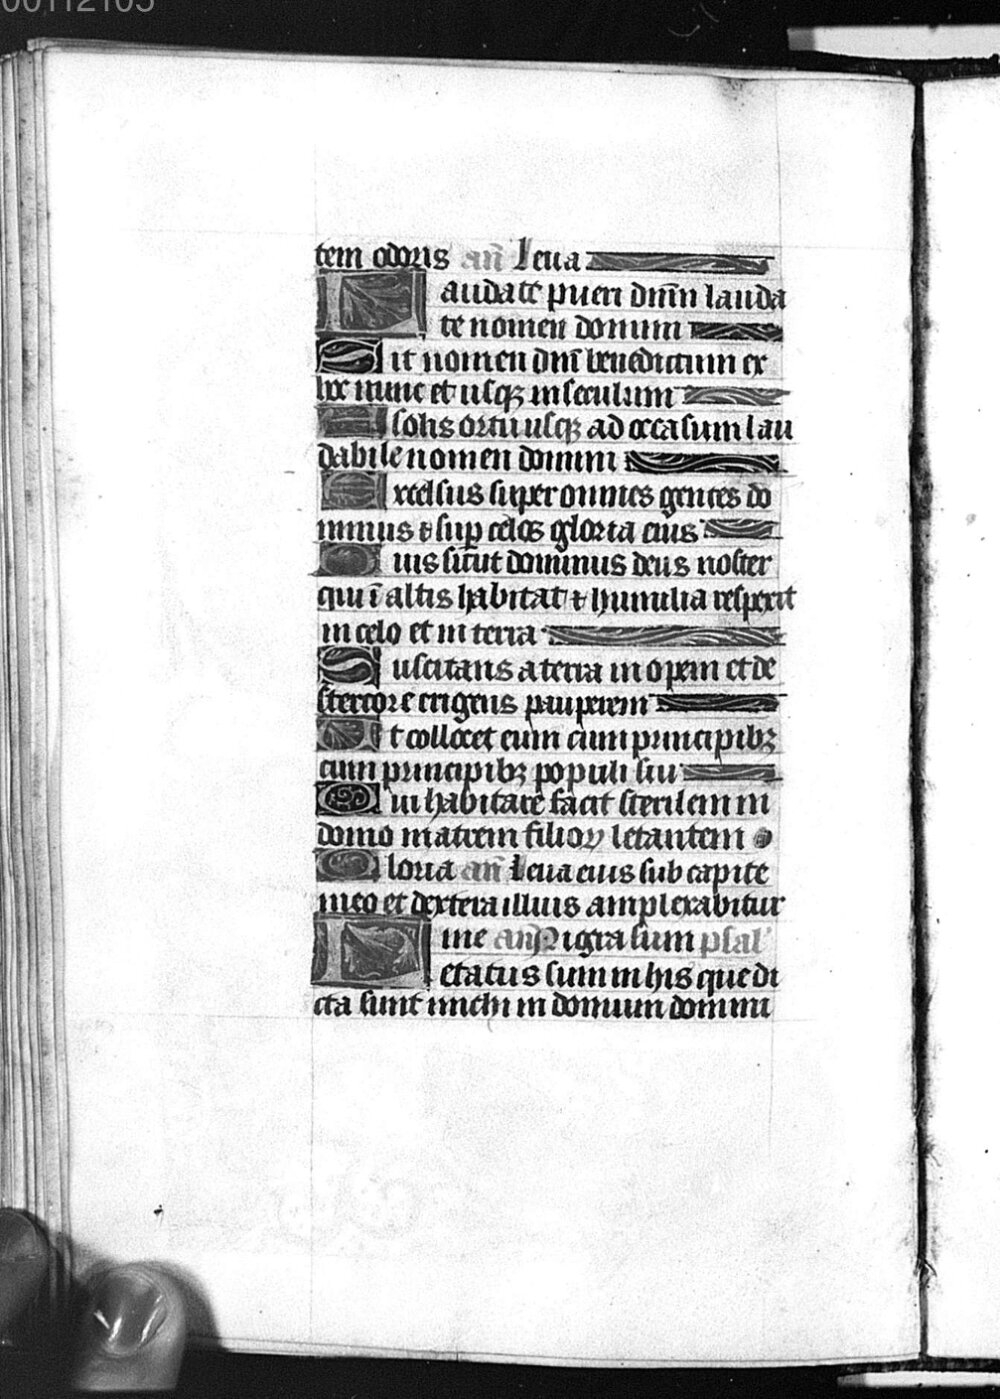 00112105
tem odoris an̄ Leua
Laudate pueri dn̄m lauda
te nomen domini
Sit nomen dn̄i benedictum ex
hoc nunc et usqꝫ in seculum
A solis ortu usqꝫ ad occasum lau
dabile nomen domini
Excelsus super omnes gentes do
minus ⁊ suꝑ celos gloria eius
Quis sicut dominus deus noster
qui ī altis habitat ⁊ humilia respexit
in celo et in terra
Suscitans a terra inopem et de
stercore erigens pauperem
Ut collocet eum cum principibꝫ
cum principibꝫ populi sui
Qui habitare facit sterilem in
domo matrem filioꝝ letantem
Gloria an̄ Leua eius sub capite
meo et dextera illius amplexabitur
me an̄ Nigra sum psal'
Letatus sum in his que di
cta sunt michi in domum domini